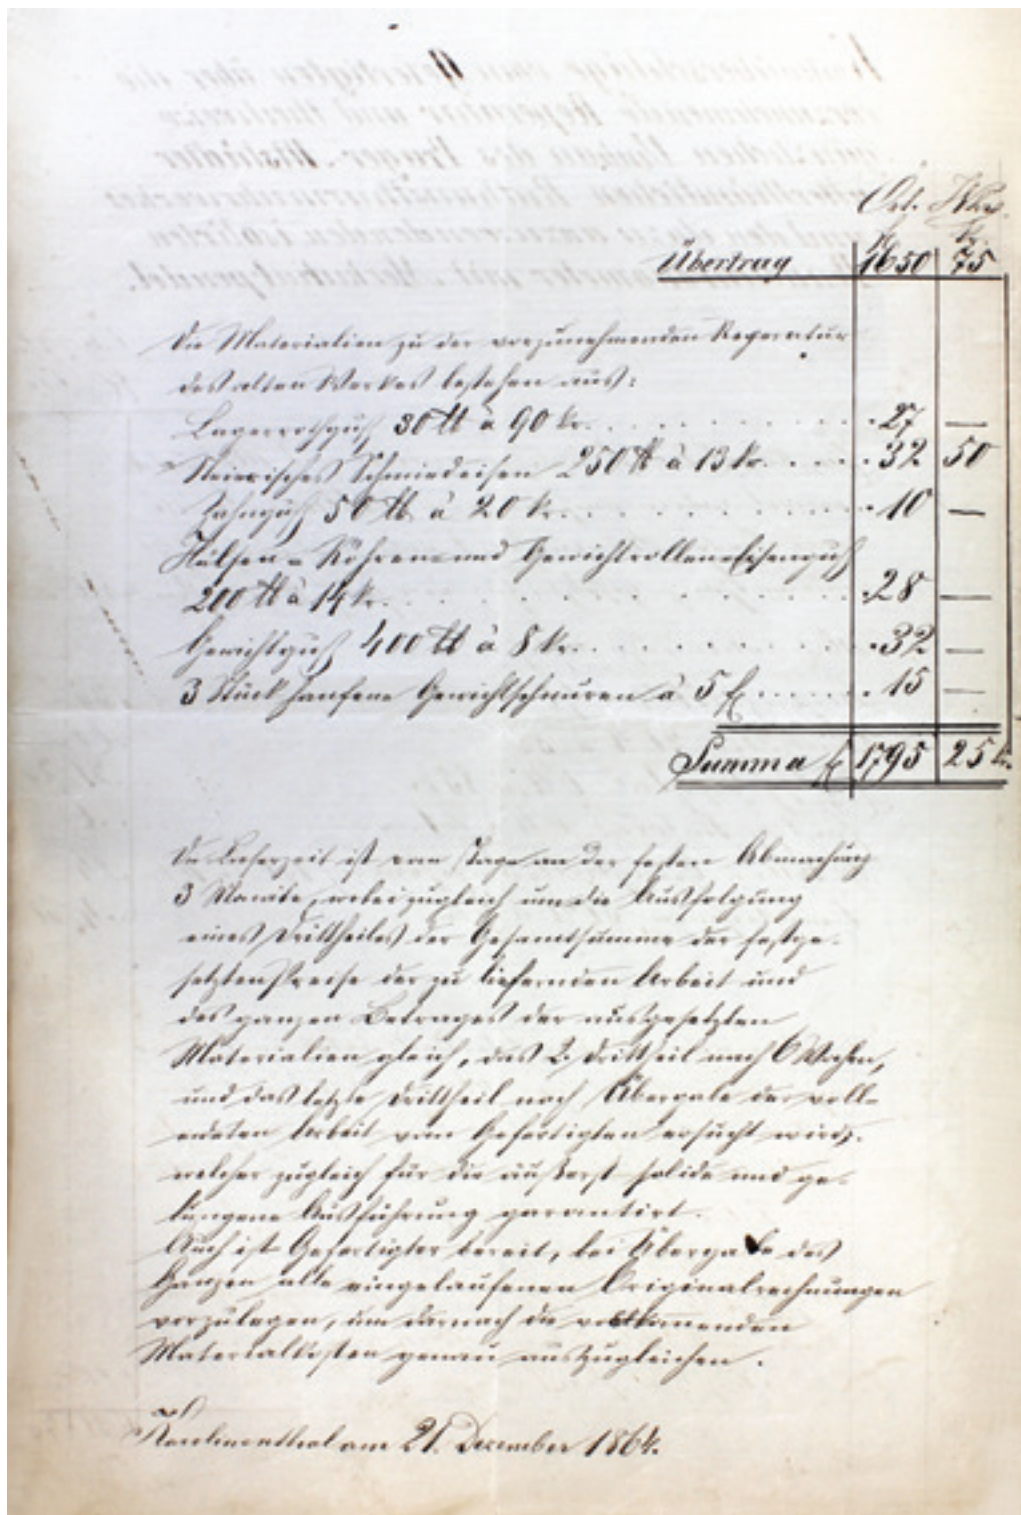 Öst. Whrg.
fl. kr.
Übertrag 1650 75
Die Materialien zu der vorzunehmenden Reperatur
des alten Werkes bestehen aus:
Lagerrothguß 30 ℔ à 90 kr. . . . . . . . . . . 27 —
Steierisches Schmiedeisen 250 ℔ à 13 kr. . . . . 32 50
Zahnguß 50 ℔ à 20 kr. . . . . . . . . . . 10 —
Hülsen- Röhren- und Gewichtrollen-Eisenguß
200 ℔ à 14 kr. . . . . . . . . . . . . 28 —
Gewichtguß 400 ℔ à 8 kr. . . . . . . . . 32 —
3 Stück hanfene Gewichtschnüren à 5 fl. . . . . . 15 —
Summa fl 1795 25 kr.
Die Lieferzeit ist vom Tage an der festen Abmachung
3 Monate, wobei zugleich um die Ausfolgung
eines Drittheiles der Gesamtsumme der festge-
setzten Preise der zu liefernden Arbeit und
des ganzen Betrages der ausgesetzten
Materialien gleich, das 2. Drittheil nach 6 Wochen,
und das letzte Drittheil nach Übergabe der voll-
endeten Arbeit vom Gefertigten ersucht wird,
welcher zugleich für die äußerst solide und ge-
lungene Ausführung garantirt.
Auch ist Gefertigter bereit, bei Übergabe des
Ganzen alle eingelaufenen Originalrechnungen
vorzulegen, um darnach die vorkommenden
Materialkosten genau auszugleichen.
Karolinenthal am 21. December 1864.